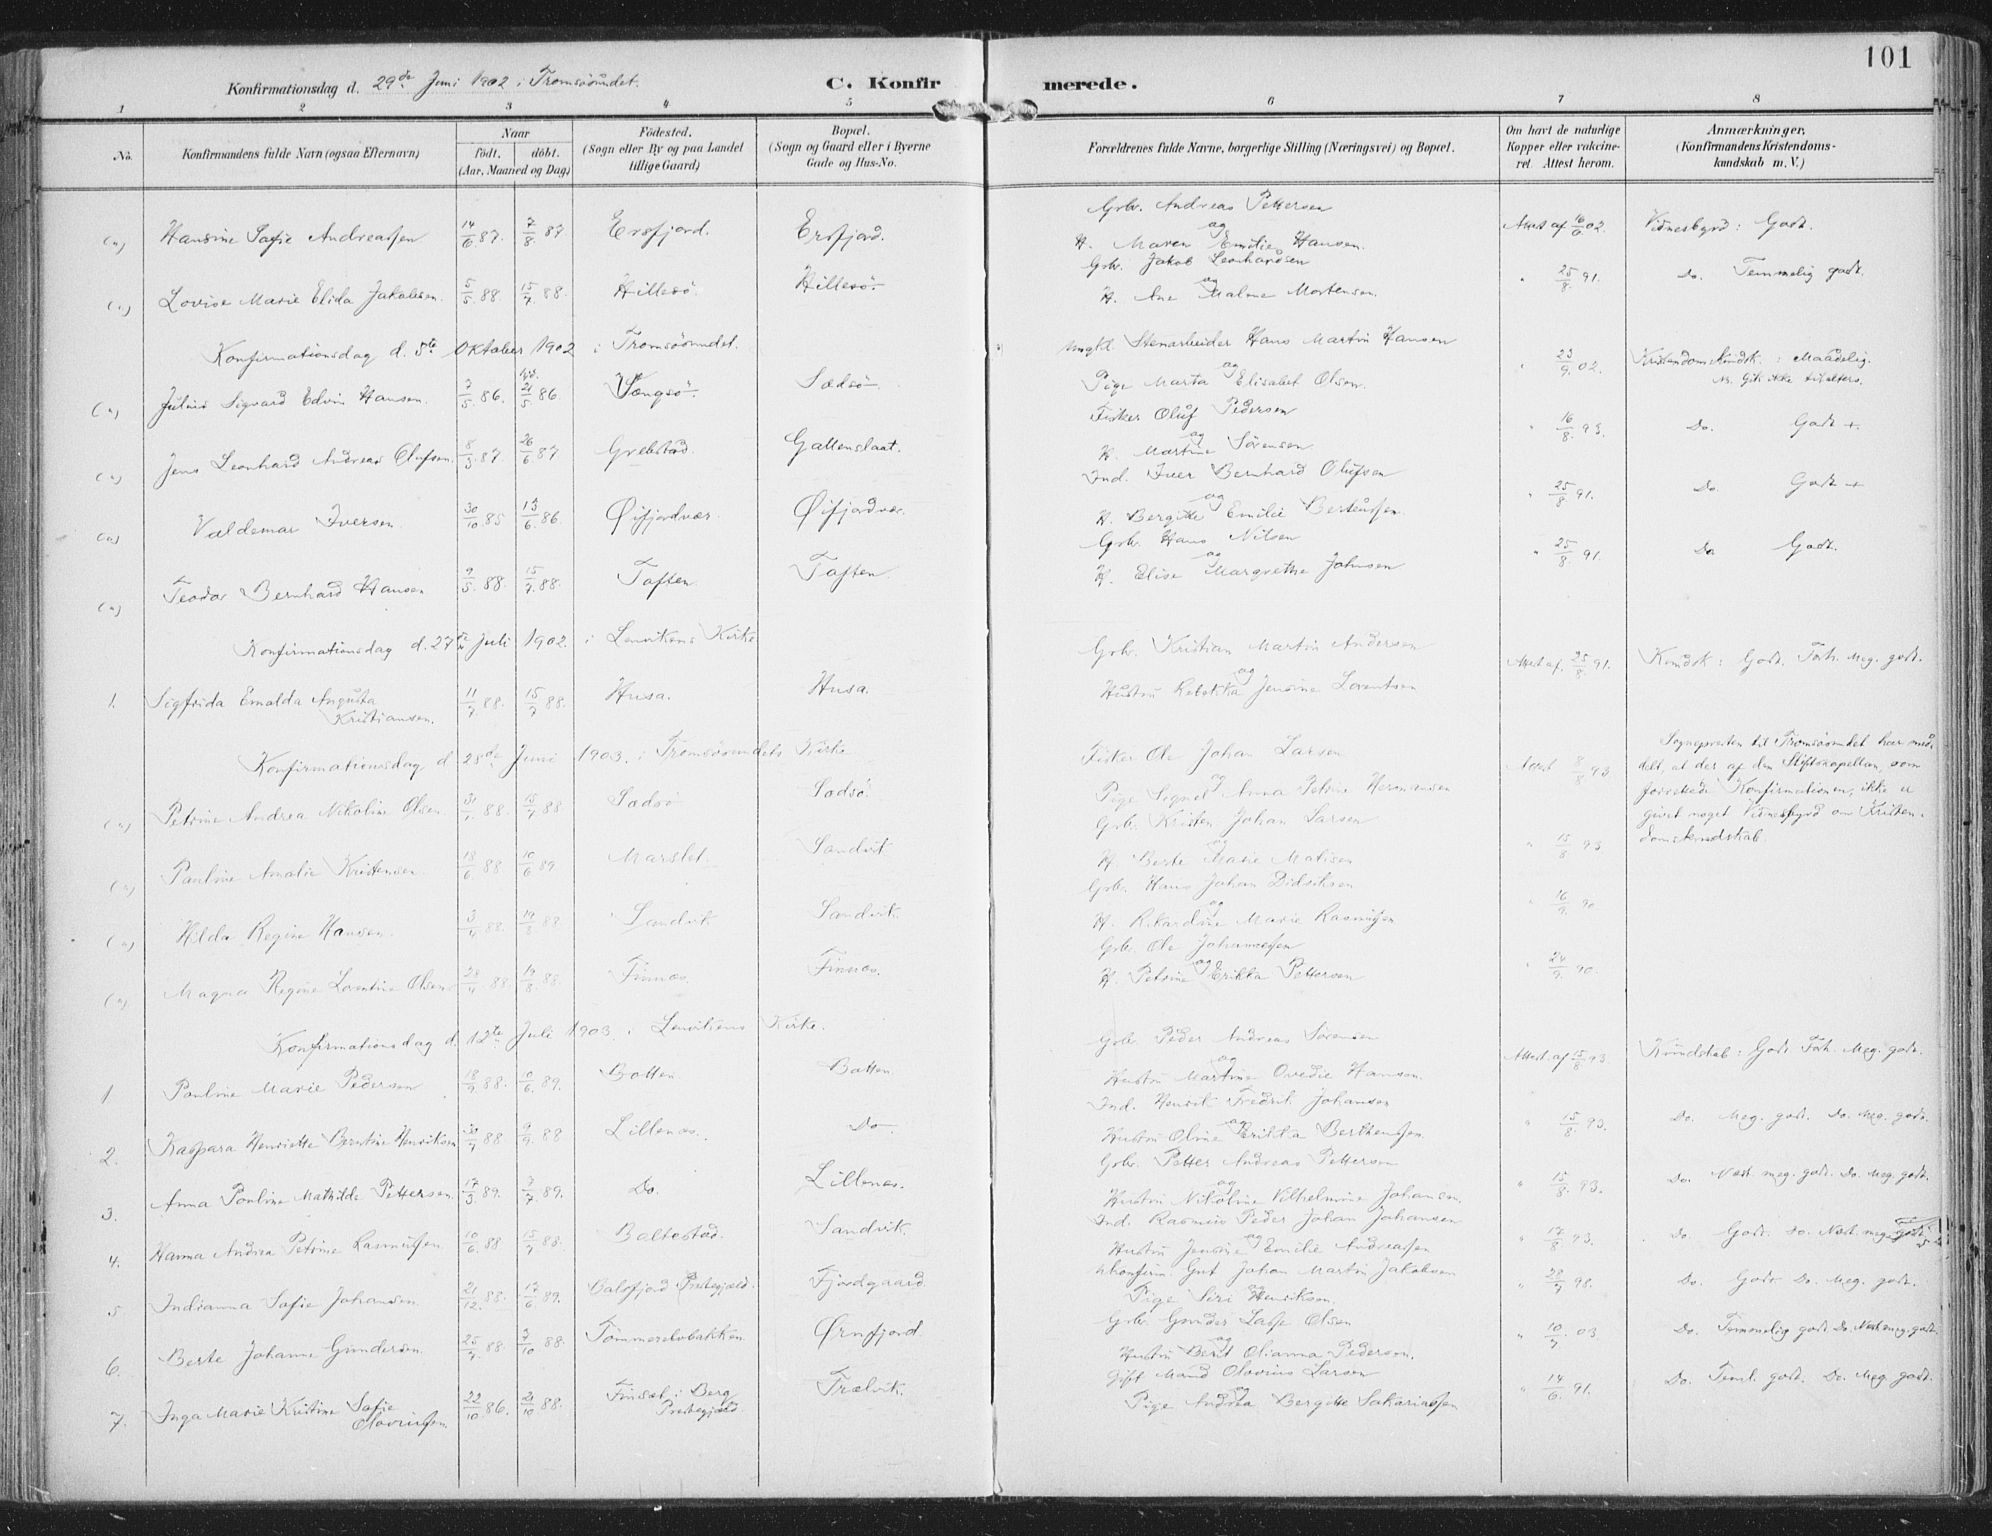 101
Konfirmationsdag d. 29de Juni 1902 i Tromsøsundet.
C. Konfirmerede.
1 2 3 4 5 6 7 8
No.
Konfirmandens fulde Navn (ogsaa Efternavn)
Naar
födt. döbt.
(Aar, Maaned og Dag)
Födested.
(Sogn eller By og paa Landet
tillige Gaard)
Bopæl.
(Sogn og Gaard eller i Byerne
Gade og Hus-No.
Forældrenes fulde Navne, borgerlige Stilling (Næringsvei) og Bopæl.
Om havt de naturlige
Kopper eller vakcine-
ret. Attest herom.
Anmærkninger.
(Konfirmandens Kristendoms-
kundskab m. V.)
Grbr. Andreas Pettersen
(") Hansine Sofie Andreassen 14/6 87. 7/8 87 Ersfjord. Ersfjord. og H. Maren Emilie Hansen. Attest af 16/6 02. Vidnesbyrd: Godt.
Grbr. Jakob Leonhardsen
(") Lovise Marie Elida Jakobsen. 5/5 88. 15/7 88. Hillesö. Hillesö. og H. Ane Malene Mortensen. " 25/8 91. Do. Temmelig godt.
Konfirmationsdag d. 5te Oktober 1902 i Tromsøsundet.
Ungkl. Stenarbeider Hans Martin Hansen
(") Julius Sigvard Edvin Hansen. 7/5 86. 21/5 86. Vengsö. Sædsö. og Pige Marta Elisabet Olsen. " 23/9 02. Kristendomskundsk.: Maadelig.
Nb. Gik ikke tilalters.
Fisker Oluf Pedersen
(") Jens Leonhard Andreas Olufsen. 8/3 87. 26/6 87 Grebstad. Gattenslaat. og H. Martine Sörensen " 16/8 93. Do. Godt +
Ind. Iver Bernhard Olufsen
(") Valdemar Iversen. 30/10 85 13/6 86. Øifjordvær. Øifjordvær. og H. Bergitte Emilie Berteussen. " 25/8 91. Do. Godt +
Grbr. Hans Nilsen
(") Teodor Bernhard Hansen 9/5 88. 15/7 88. Taften. Taften. og H. Elise Margrethe Johnsen " 25/8 91. Do Godt.
Konfirmationsdag d. 27de Juli 1902. i Lenvikens Kirke
Grbr. Kristian Martin Andersen
1. Sigfrida Emalda Augusta Kristiansen. 11/7 88. 15/7 88. Husa. Husa. og Hustru Rebekka Jensine Lorentsen Attest af. 25/8 91. Kundsk: Godt. Forh. Meg. godt.
Konfirmationsdag d 28de Juni 1903. i Tromsøsundets Kirke
Fisker Ole Johan Larsen
(") Petrine Andrea Nikoline Olsen. 88. 15/7 88 Sadsö Sadsö. og Pige Signel Anna Petrine Attest 8/8 93.
Sognepresten til Tromsøsundet har med-
delt, at der af den Stiftskapellan, som
forrettede Konfirmationen, ikke er
givet noget Vidnesbyrd om Kristen-
domskundskab.
Grbr. Kristen Johan Larsen
(") Pauline Amalie Kristensen. 18/6 88. 10/6 89 Sandvik og H. Berte Marie Matisen " 15/8 93
Grbr. Hans Johan Didriksen
(") Hilda Regine Hansen. 3/4 88. 19/8 88. Sandvik Sandvik. og H. Rikardine Marie Rasmussen " 16/9. 90
Grbr. Ole Johannessen
(") Magna Regine Lorentine Olsen 28/4 88. 19/8 88. Finnæs. Finnæs. og H. Petrine Erikka Pettersen " 24/9. 90.
Konfirmationsdag d. 12te Juli 1903. i Lenvikens Kirke.
Grbr. Peder Andreas Sörensen
1 Pauline Marie Pedersen 18/9 88. 10/6. 89. Botten Botten og Hustru Martine Ovedie Hansen. Attest af 15/8 93. Kundskab: Godt Forh. Meg. godt.
Ind. Henrik Fredrik Johansen
2. Kaspara Henriette Berntine Henriksen 30/7 88 9/9. 88 Lillenes. Do. og Hustru Oline Erikka Bertheussen. " 15/8. 93. Do. Meg. godt. Do. Meg. godt.
Grbr. Petter Andreas Pettersen
3. Anna Pauline Mathilde Pettersen. 17/3. 89. 7/7 89. Do. Lillenes. og Hustru Nikoline Vilhelmine Johansen. " 15/8. 93. Do. Næst. meg. godt. Do. Meg. godt.
Ind. Rasmus Peder Johan Johansen
4. Hanna Andrea Petrine Rasmussen 10/6. 88 15/7 88. Baltestad. Sandvik. og Hustru Jensine Emilie Andreassen " 17/8 93. Do. Godt. Do. Næst. meg. godt.
Ukonfirm. Gut Johan Martin Jakobsen
5. Indianna Sofie Johansen. 21/12. 88. 17/6 89. Balsfjord Prestegjæld. Fjordgaard og Pige Siri Henriksen. " 28/7 98. Do. Godt Do. Meg. godt.
Grbr. Gunder Lasse Olsen
6. Berte Johanne Gundersen. 25/7 88. 7/10 88. Tömmerelvbakken. Ørnfjord. og Hustru Berit Olianna Pedersen. " 10/7. 03 Do. Temmelig godt. Do. Næst. meg. godt.
Gift Mand Olovius Larsen
7. Inga Marie Kristine Sofie Oloviussen. 22/10 86. 21/10 88. Finsæt i Berg Prestegjæld. Trælvik. og Pige Andrea Bergitte Sakariassen " 14/6. 91. Do. Teml. godt. Do. Meg. godt.